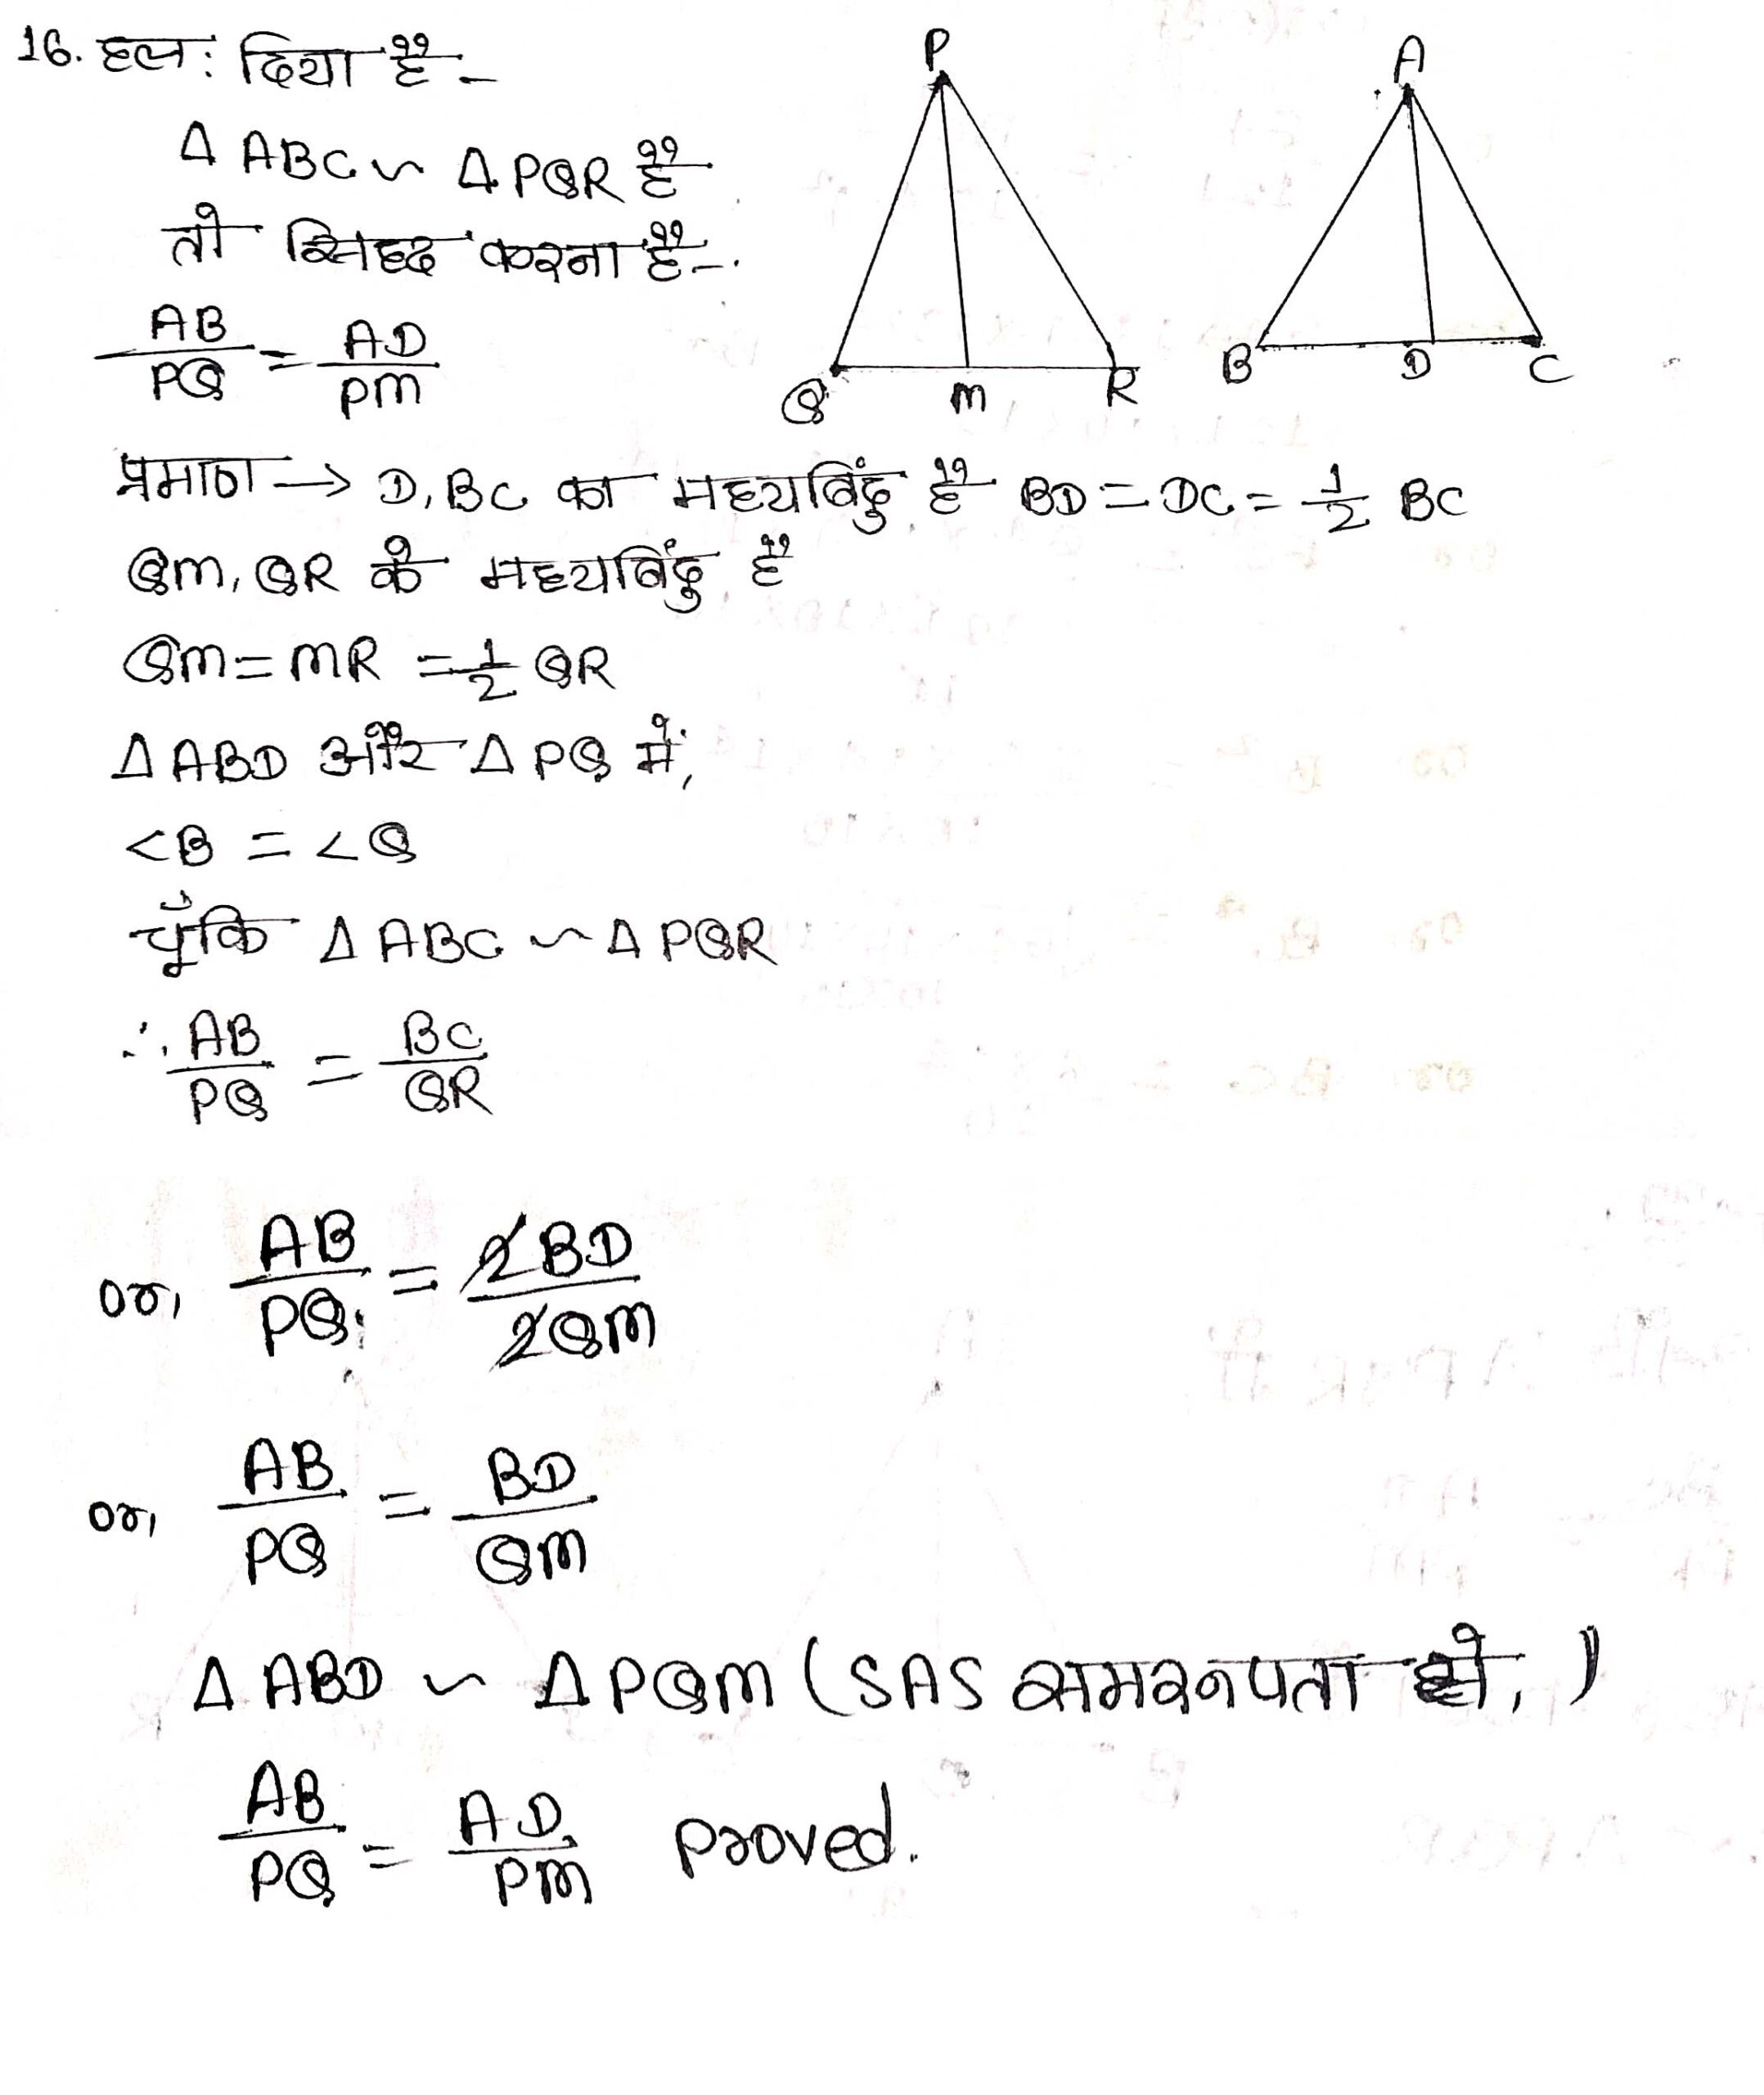 16. हल: दिया है -
P
A
Δ ABC ~ Δ PQR है
तो सिद्ध करना है -
AB/PQ = AD/PM
Q M R
B D C
प्रमाण → D, BC का मध्यबिंदु है BD = DC = 1/2 BC
QM, QR के मध्यबिंदु है
QM = MR = 1/2 QR
Δ ABD और Δ PQ में,
<B = <Q
चूँकि Δ ABC ~ Δ PQR
∴ AB/PQ = BC/QR
or, AB/PQ = 2BD/2QM
or, AB/PQ = BD/QM
Δ ABD ~ Δ PQM (SAS समरूपता से,)
AB/PQ = AD/PM proved.